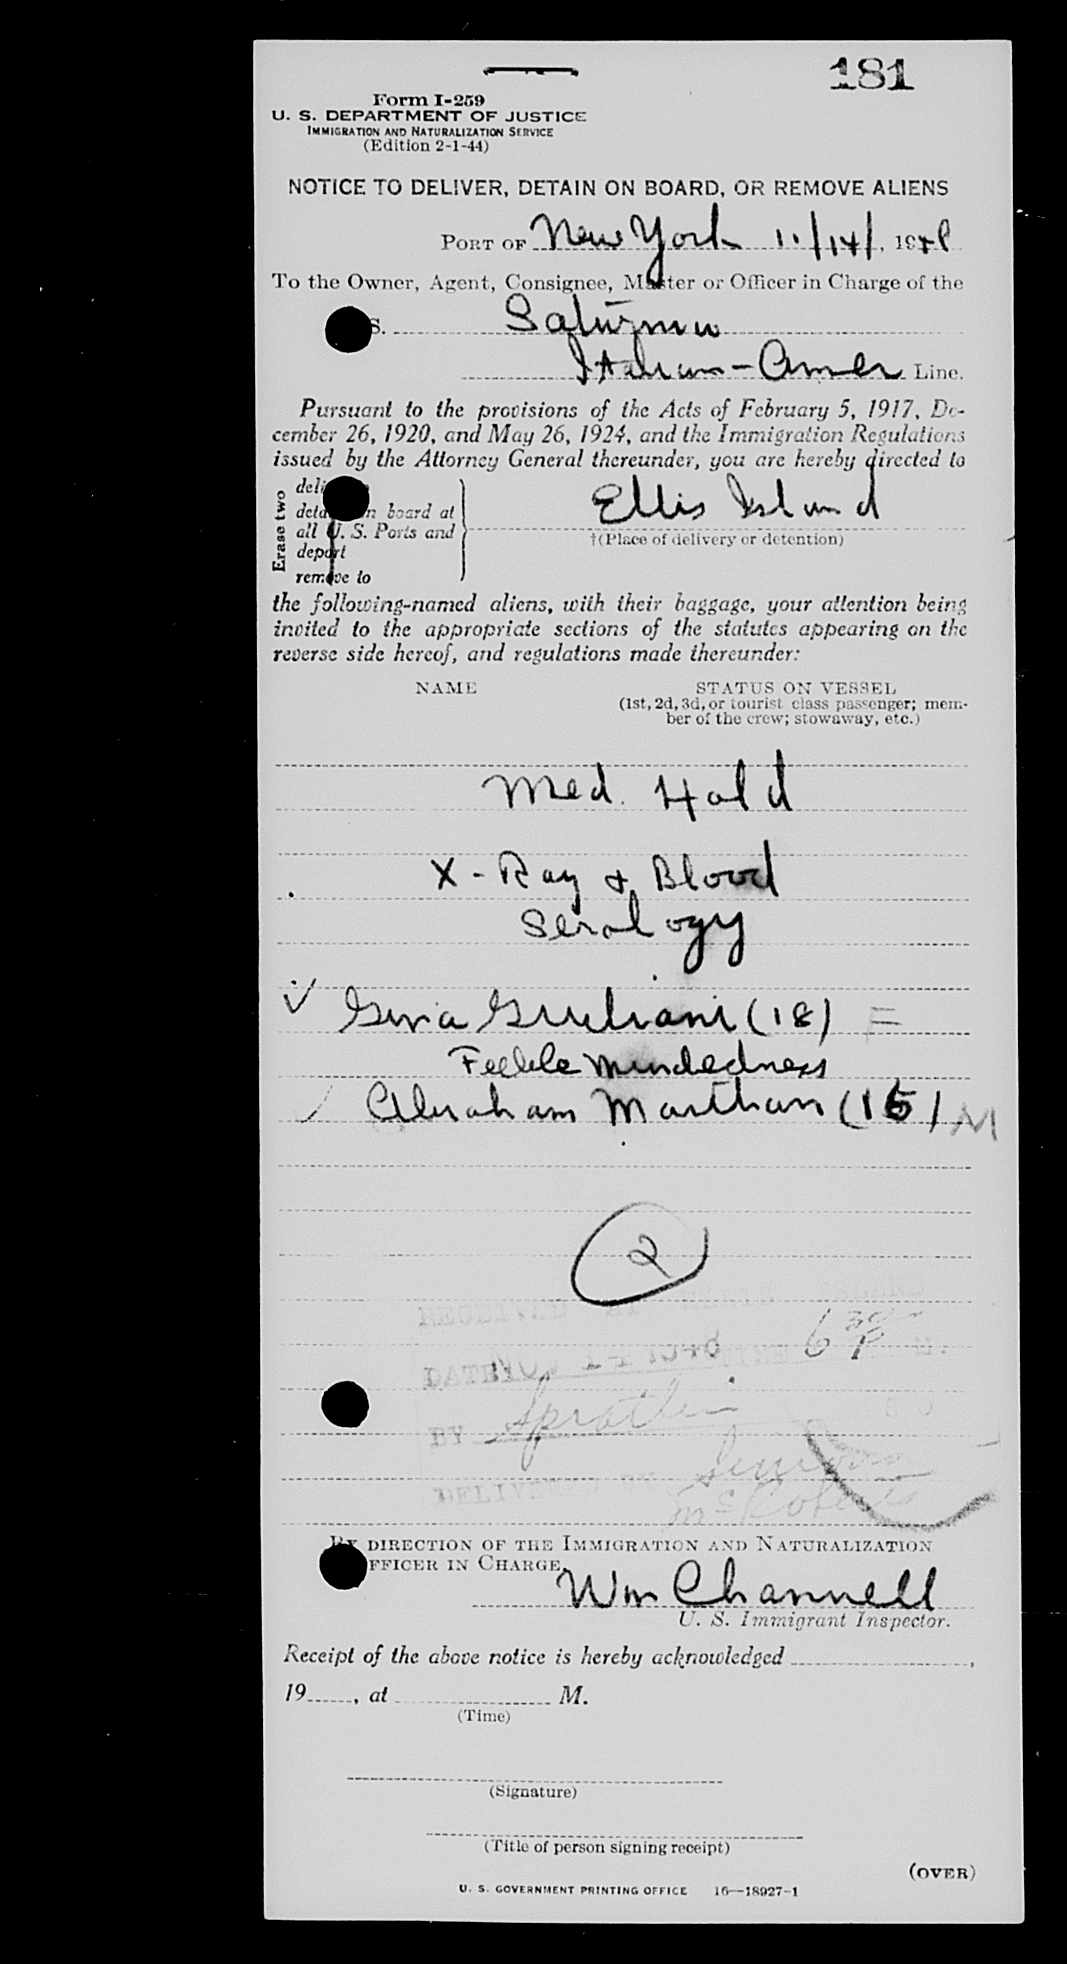 181
Form I-259
U. S. DEPARTMENT OF JUSTICE
IMMIGRATION AND NATURALIZATION SERVICE
(Edition 2-1-44)
NOTICE TO DELIVER, DETAIN ON BOARD, OR REMOVE ALIENS
PORT OF New York 11/14/, 1948
To the Owner, Agent, Consignee, Master or Officer in Charge of the
S. Saturnia
Italian-Amer Line.
Pursuant to the provisions of the Acts of February 5, 1917, De-
cember 26, 1920, and May 26, 1924, and the Immigration Regulations
issued by the Attorney General thereunder, you are hereby directed to
Erase two
board at
all U. S. Ports and
deport
remove to
Ellis Island
†(Place of delivery or detention)
the following-named aliens, with their baggage, your attention being
invited to the appropriate sections of the statutes appearing on the
reverse side hereof, and regulations made thereunder:
NAME STATUS ON VESSEL
(1st, 2d, 3d, or tourist class passenger; mem-
ber of the crew; stowaway, etc.)
Med. Hold
X-Ray & Blood
Serology
✓ Gina Giuliani (18) =
Feeble Mindedness
✓ Abraham Marthan (15) M
2
RECEIVED AT
6 30 P M.
DATE NOV
BY
DELIVERED BY
McRoberts
BY DIRECTION OF THE IMMIGRATION AND NATURALIZATION
OFFICER IN CHARGE.
Wm Channell
U. S. Immigrant Inspector.
Receipt of the above notice is hereby acknowledged ,
19 , at M.
(Time)
(Signature)
(Title of person signing receipt)
(OVER)
U. S. GOVERNMENT PRINTING OFFICE 16—18927-1